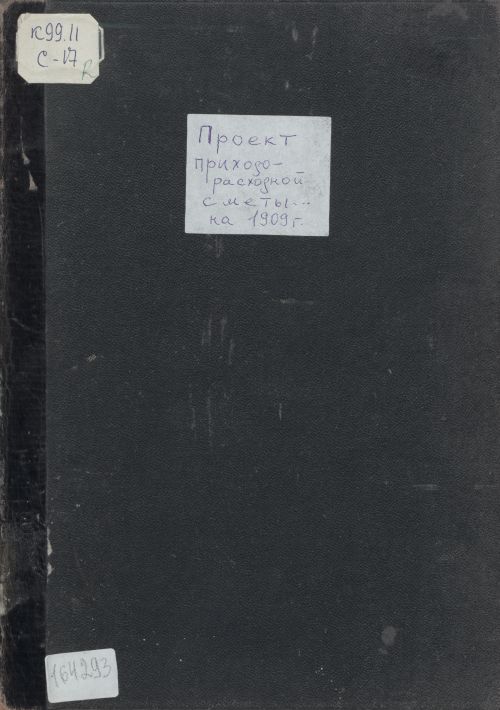 к99.11
С-17
R
Проект
приходо-
расходной
сметы...
на 1909г.
164293